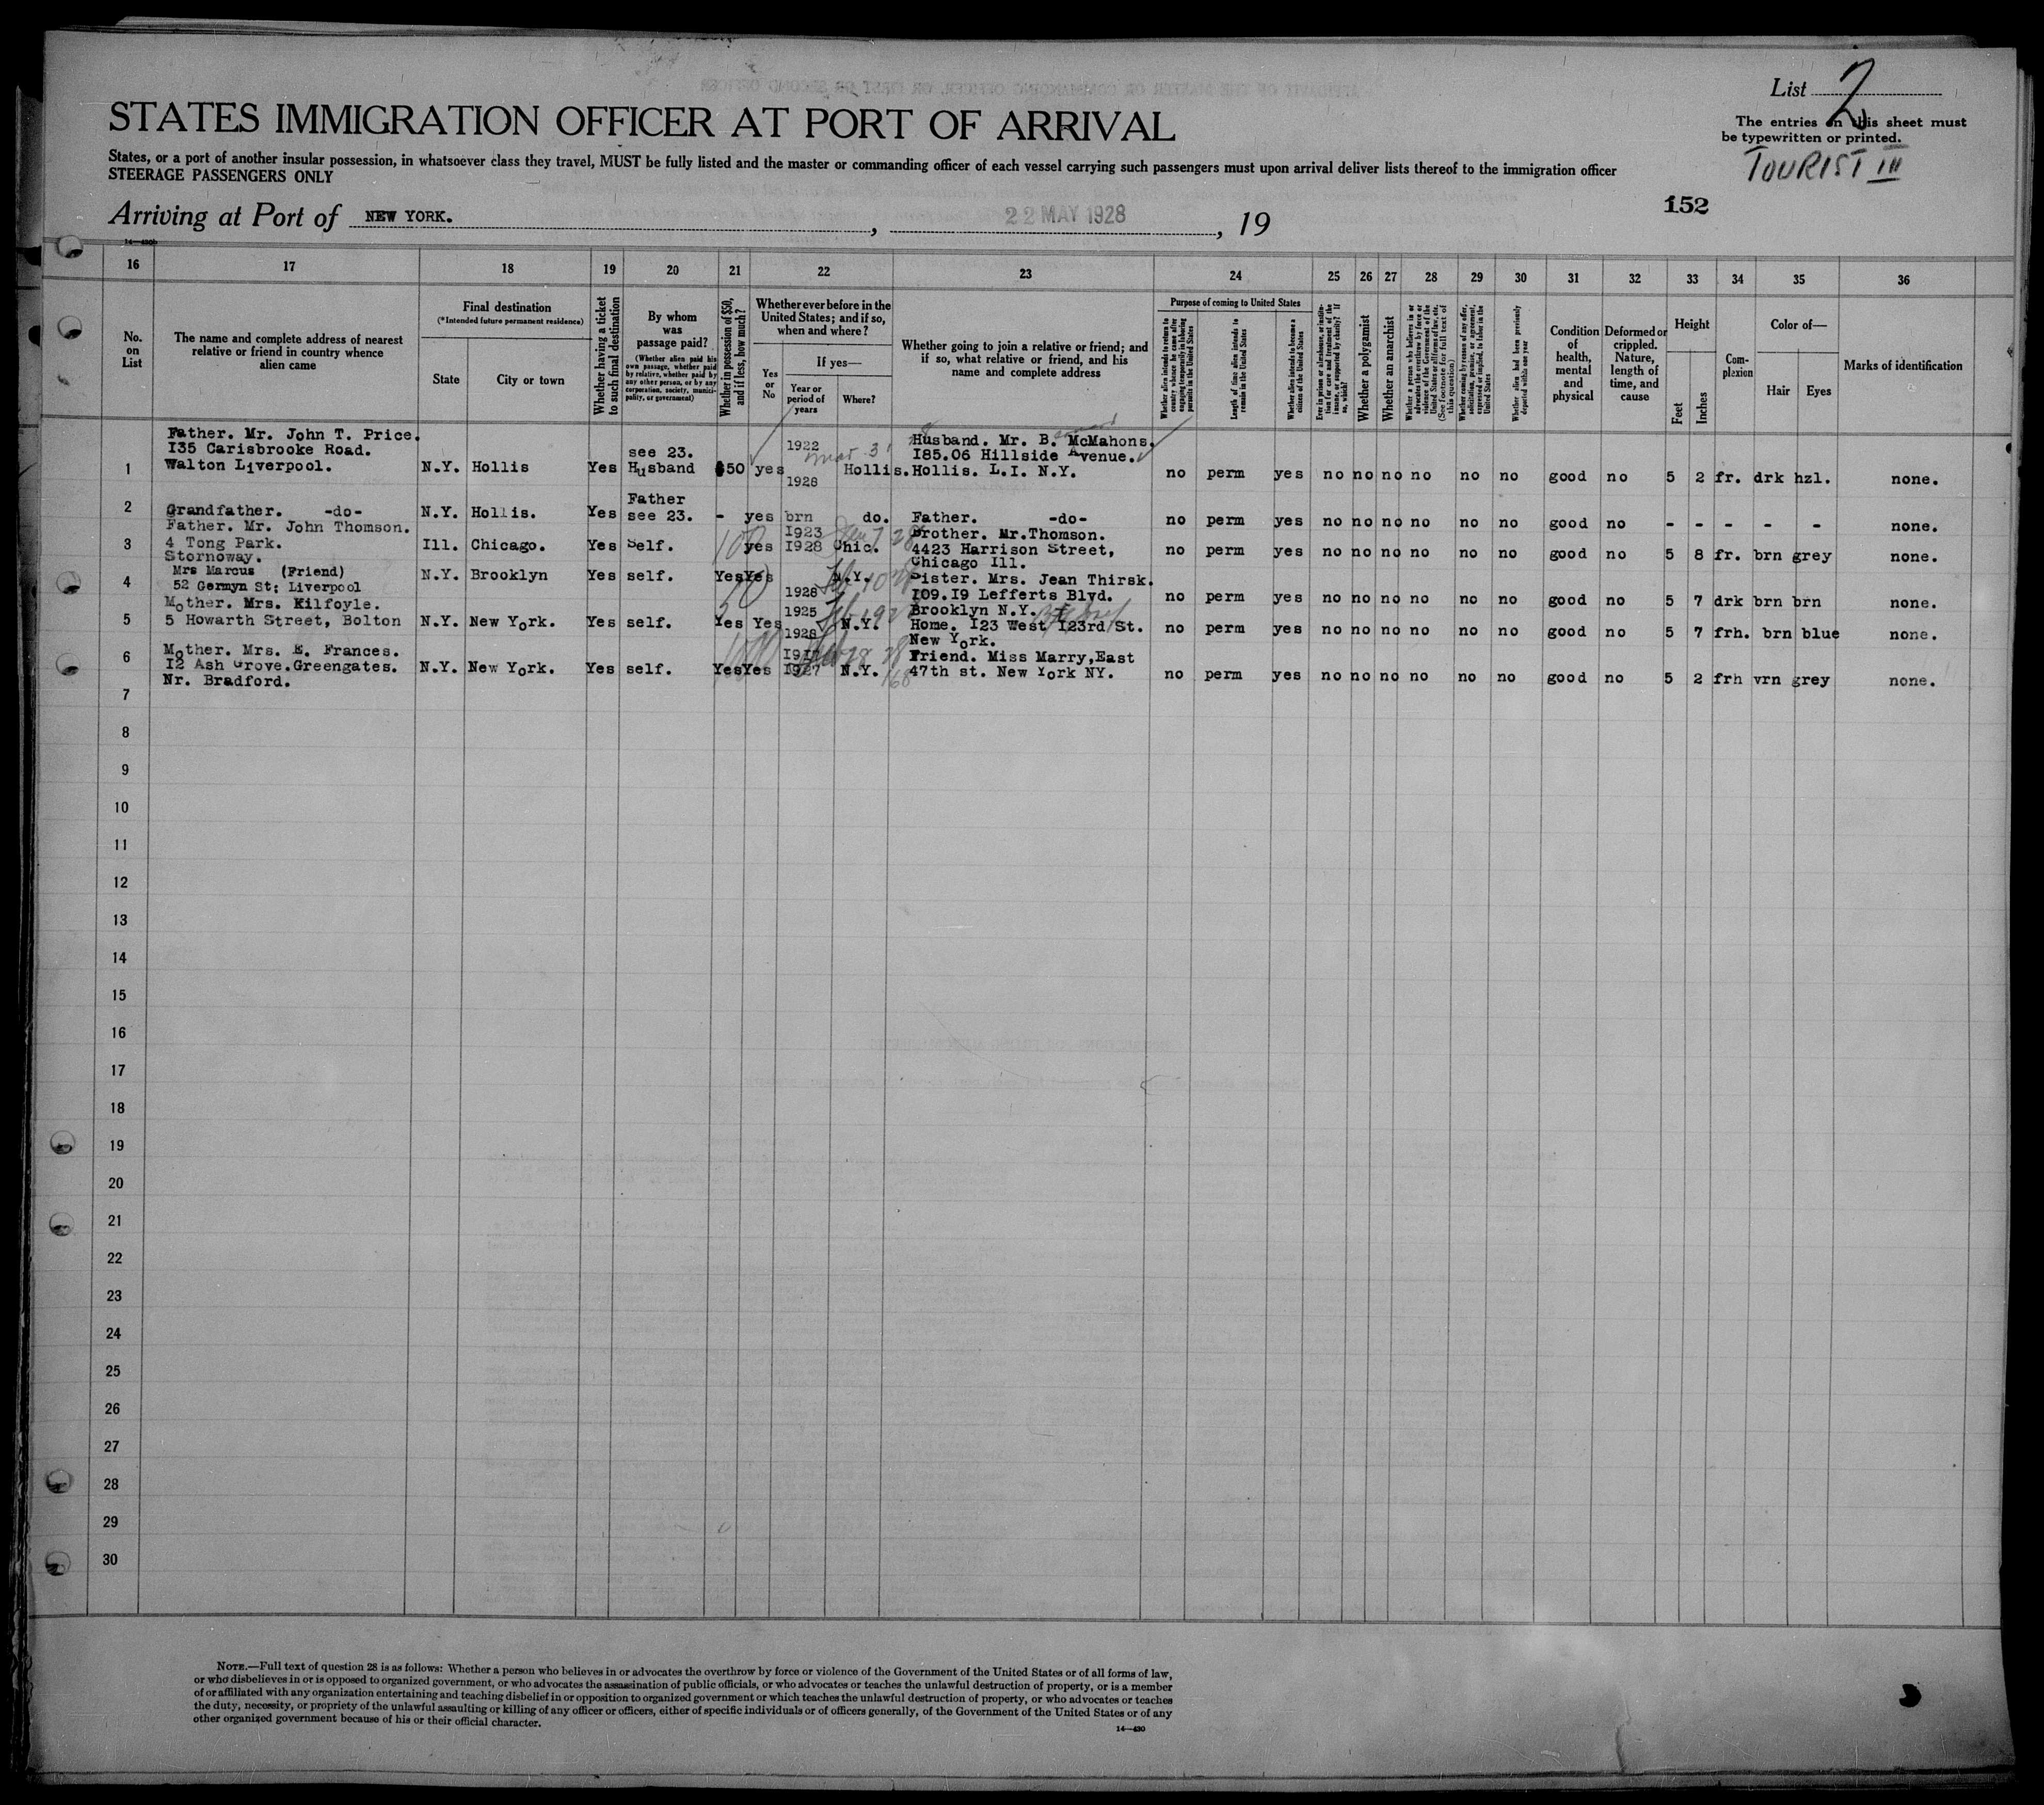 List 2
STATES IMMIGRATION OFFICER AT PORT OF ARRIVAL
The entries on this sheet must
be typewritten or printed.
States, or a port of another insular possession, in whatsoever class they travel, MUST be fully listed and the master or commanding officer of each vessel carrying such passengers must upon arrival deliver lists thereof to the immigration officer
STEERAGE PASSENGERS ONLY
TOURIST III
152
Arriving at Port of NEW YORK. , 22 MAY 1928 , 19
14—430b
16 17 18 19 20 21 22 23 24 25 26 27 28 29 30 31 32 33 34 35 36
No. on List
The name and complete address of nearest
relative or friend in country whence
alien came
Final destination
(*Intended future permanent residence)
State
City or town
Whether having a ticket
to such final destination
By whom
was
passage paid?
(Whether alien paid his
own passage, whether paid
by relative, whether paid by
any other person, or by any
corporation, society, munici-
pality, or government)
Whether in possession of $50,
and if less, how much?
Whether ever before in the
United States; and if so,
when and where?
Yes
or
No
If yes—
Year or
period of
years
Where?
Whether going to join a relative or friend; and
if so, what relative or friend, and his
name and complete address
Purpose of coming to United States
Whether alien intends to return to
country whence he came after
engaging temporarily in laboring
pursuits in the United States
Length of time alien intends to
remain in the United States
Whether alien intends to become a
citizen of the United States
Ever in prison or almshouse, or institu-
tion for care and treatment of the
insane, or supported by charity? If
so, which?
Whether a polygamist
Whether an anarchist
Whether a person who believes in or
advocates the overthrow by force or
violence of the Government of the
United States or all forms of law, etc.
(See footnote for full text of
this question)
Whether coming by reason of any offer,
solicitation, promise, or agreement,
expressed or implied, to labor in the
United States
Whether alien had been previously
deported within one year
Condition
of
health,
mental
and
physical
Deformed or
crippled.
Nature,
length of
time, and
cause
Height
Feet
Inches
Com-
plexion
Color of—
Hair
Eyes
Marks of identification
Father. Mr. John T. Price.
I35 Carisbrooke Road.
1 Walton Liverpool. N.Y. Hollis Yes see 23. Husband $50 yes 1922 1928 Hollis. Husband. Mr. B. McMahons.
I85.06 Hillside Avenue.
Hollis. L.I. N.Y. no perm yes no no no no no no good no 5 2 fr. drk hzl. none.
2 Grandfather. -do- N.Y. Hollis. Yes Father see 23. - yes brn do. Father. -do- no perm yes no no no no no no good no - - - - - none.
Father. Mr. John Thomson.
3 4 Tong Park. Ill. Chicago. Yes Self. 100 yes I923 I928 Chic. Brother. Mr.Thomson.
Stornoway. 4423 Harrison Street,
Chicago Ill. no perm yes no no no no no no good no 5 8 fr. brn grey none.
Mrs Marcus (Friend)
4 52 Germyn St: Liverpool N.Y. Brooklyn Yes self. Yes Yes 1928 N.Y. Sister. Mrs. Jean Thirsk.
I09.I9 Lefferts Blvd.
Brooklyn N.Y. no perm yes no no no no no no good no 5 7 drk brn brn none.
Mother. Mrs. Kilfoyle.
5 5 Howarth Street, Bolton N.Y. New York. Yes self. Yes Yes 1925 1928 N.Y. Home. I23 West I23rd St.
New York. no perm yes no no no no no no good no 5 7 frh. brn blue none.
Mother. Mrs. E. Frances.
6 I2 Ash Grove.Greengates. N.Y. New York. Yes self. Yes Yes I927 N.Y. Friend. Miss Marry,East
Nr. Bradford. 47th st. New York NY. no perm yes no no no no no no good no 5 2 frh vrn grey none.
7
8
9
10
11
12
13
14
15
16
17
18
19
20
21
22
23
24
25
26
27
28
29
30
NOTE.—Full text of question 28 is as follows: Whether a person who believes in or advocates the overthrow by force or violence of the Government of the United States or of all forms of law,
or who disbelieves in or is opposed to organized government, or who advocates the assassination of public officials, or who advocates or teaches the unlawful destruction of property, or is a member
of or affiliated with any organization entertaining and teaching disbelief in or opposition to organized government or which teaches the unlawful destruction of property, or who advocates or teaches
the duty, necessity, or propriety of the unlawful assaulting or killing of any officer or officers, either of specific individuals or of officers generally, of the Government of the United States or of any
other organized government because of his or their official character.
14—430